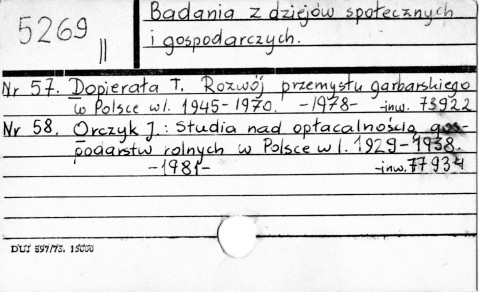 5269 ||
Badania z dziejów społecznych
i gospodarczych.
Nr 57. Dopierała T. Rozwój przemysłu garbarskiego
w Polsce w l. 1945-1970. -1978- inw. 73922
Nr 58. Orczyk J.: Studia nad opłacalnością gos-
podarstw rolnych w Polsce w l. 1929-1938.
-1981- -inw. 77934
DUJ 597/73. 15000